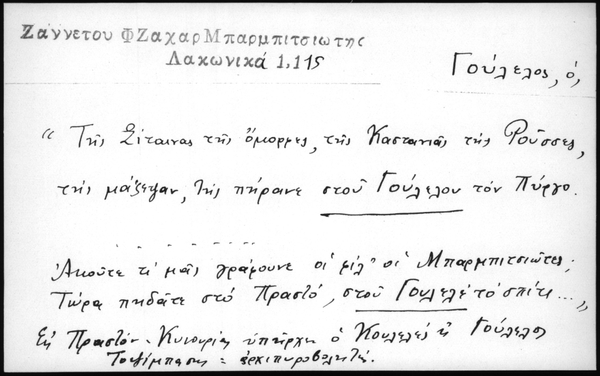 Ζάννετου Φ Ζαχαρ Μπαρμπιτσιώτης
Λακωνικά 1,115
Γούλελος, ὁ,
“ Τῆς Σίταινας τῆς ὄμορφες, τῆς Καστανιᾶς τῆς Ροῦσσες,
τῆς μάζεψαν, τῆς πήρανε στοῦ Γούλελου τὸν Πύργο.
. . . . . . .
Ἀκοῦτε τί μᾶς γράφουνε οἱ φίλ᾿ οἱ Μπαρμπιτσιῶτες;
Τώρα πηδᾶτε στὸ Πραστό, στοῦ Γουλελὲ τὸ σπίτι...„
Εἰς Πραστὸν - Κυνουρίας ὑπῆρχε ὁ Κουλελὲς ἢ Γούλελος
= ἀρχιπυροβολητής.